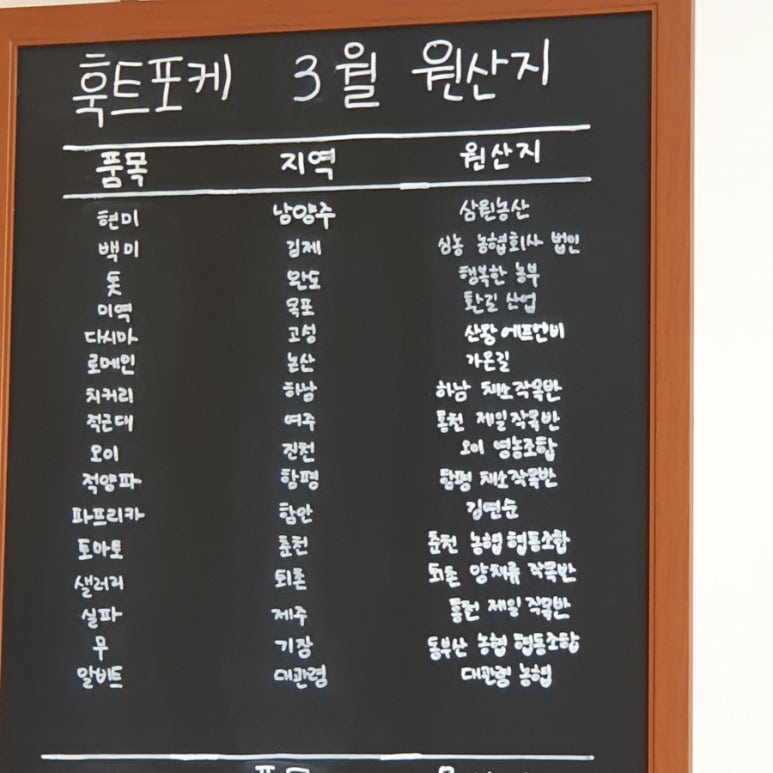 훅트포케 3월 원산지
품목 지역 원산지
현미 남양주 삼원농산
백미 김제 심농 농협회사 법인
톳 완도 행복한 농부
미역 목포 환길 산업
다시마 고성 산왕 에프엔비
로메인 논산 가온길
치커리 하남 하남 채소작목반
적근대 여주 홍천 제일작목반
오이 진천 오이 영농조합
적양파 함평 함평 채소작목반
파프리카 함안 김연순
토마토 춘천 춘천 농협 협동조합
샐러리 퇴촌 퇴촌 양채류 작목반
실파 제주 홍천 제일 작목반
무 기장 동부산 농협 협동조합
알비트 대관령 대관령 농협